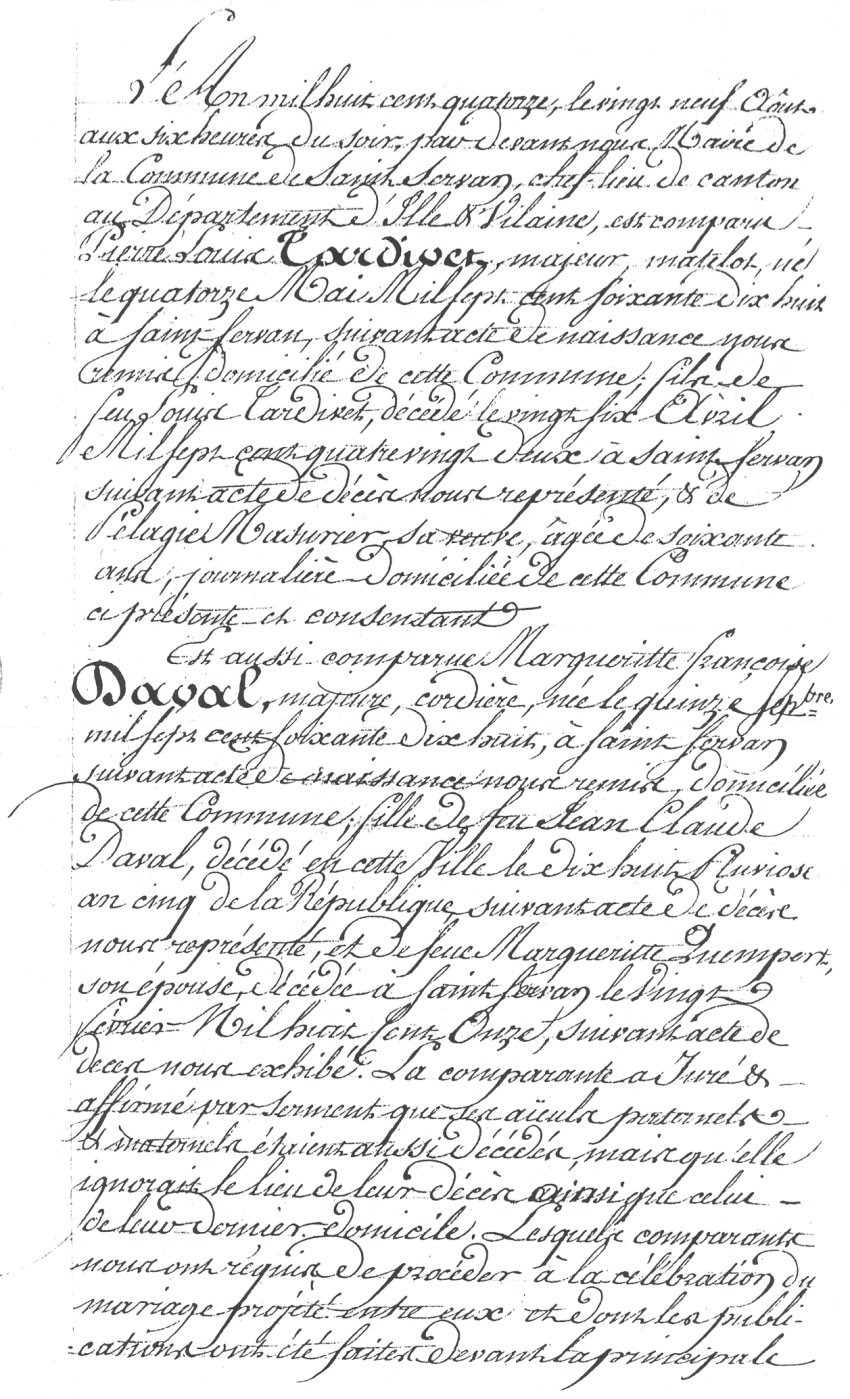 L'é An mil huit cent quatorze, le vingt neuf Août
aux six heures du soir, par devant nous Maire de
la Commune de Saint Servan, chef-lieu de canton
au Département d'Ille & Vilaine, est comparu
Pierre Louis Tardivet, majeur, matelot, né
le quatorze Mai Mil sept cent soixante dix huit
à Saint Servan, suivant acte de naissance nous
remis, domicilié de cette Commune; fils de
feu Louis Tardivet, décédé le vingt six Avril
Mil sept cent quatre vingt deux à Saint Servan
suivant acte de décès nous représenté, & de
Pélagie Masurier, sa veuve, âgée de soixante
ans, journalière domiciliée de cette Commune
ci présente et consentant
Est aussi comparue Margueritte françoise
Daval, majeure, cordière, née le quinze Sepbre.
mil sept cent soixante dix huit, à Saint Servan
suivant acte de naissance nous remis, domiciliée
de cette Commune; fille de feu Jean Claude
Daval, décédé en cette Ville le dix huit Pluviose
an cinq de la République suivant acte de décès
nous représenté, et de feue Margueritte Quempert,
son épouse, décédée à Saint Servan le Vingt
février Mil huit Cent Onze, suivant acte de
deces nous exhibé. La comparante a Juré &
affirmé par serment que ses aïeuls paternels
& maternels étaient aussi décédés, mais qu'elle
ignorait le lieu de leur décès ainsi que celui
de leur dernier domicile. Lesquels comparants
nous ont réquis de procéder à la célébration du
mariage projeté entre eux et dont les publi-
cations ont été faites devant la principale